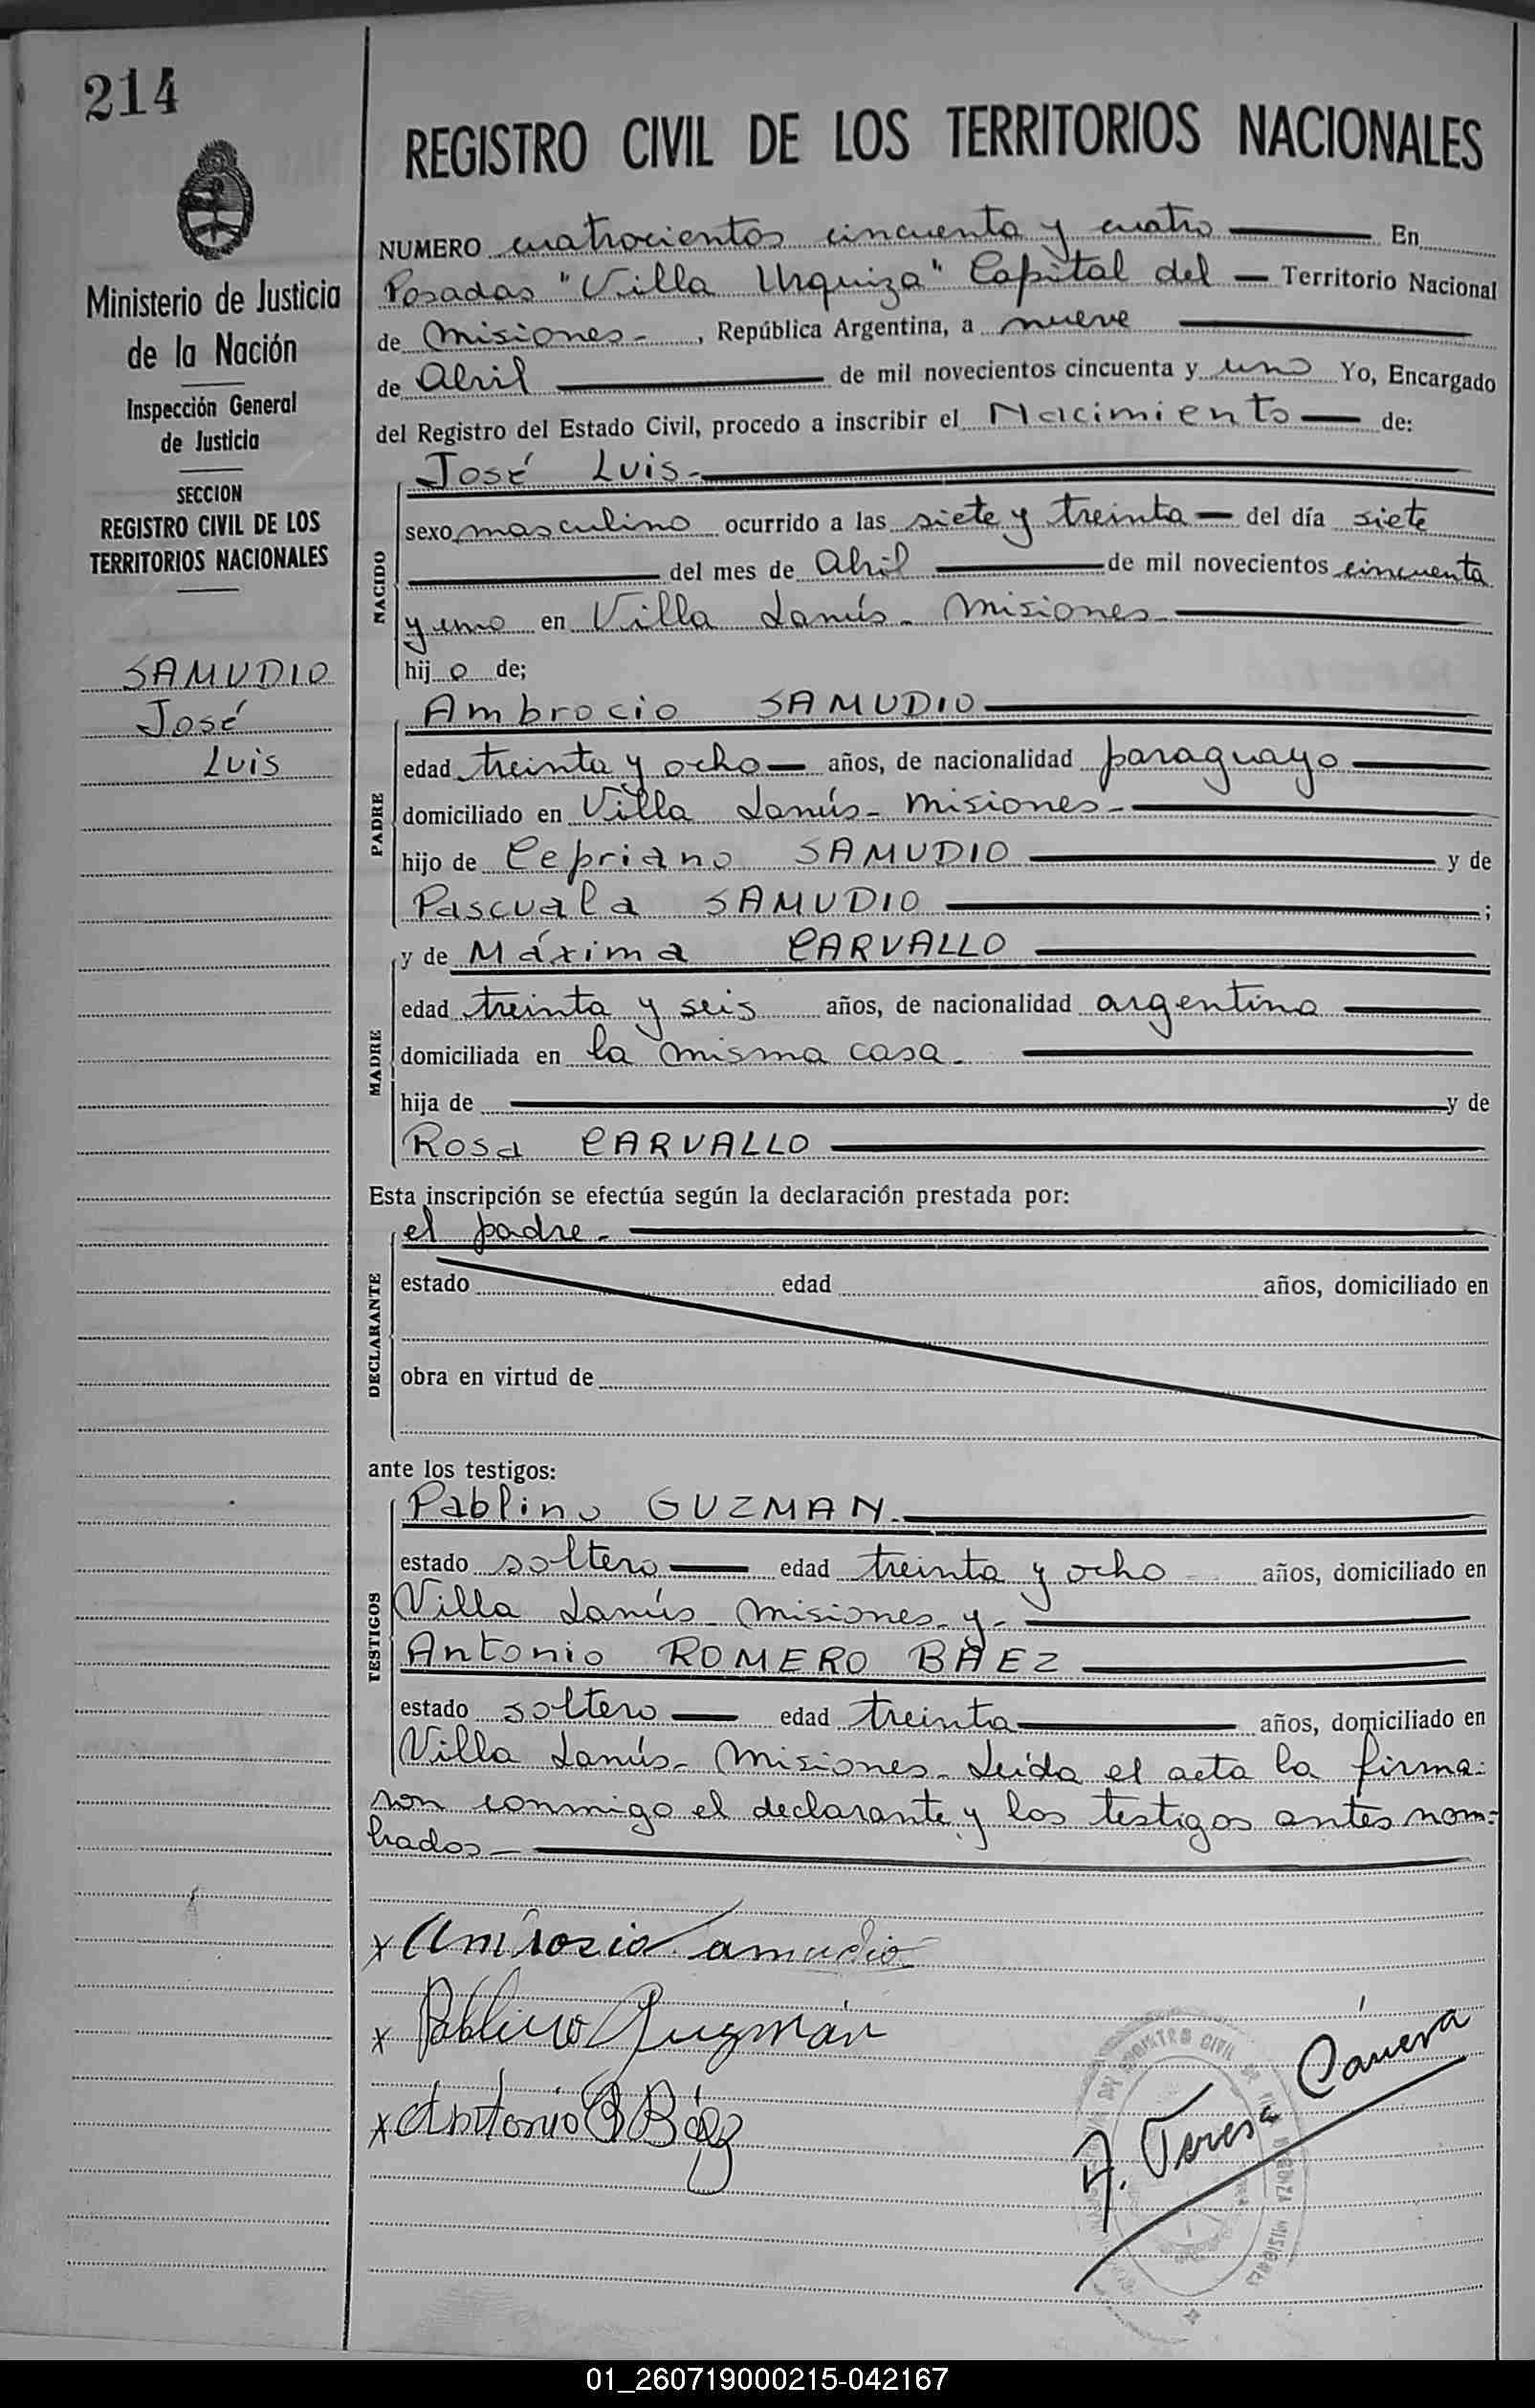 214
REGISTRO CIVIL DE LOS TERRITORIOS NACIONALES
Ministerio de Justicia
de la Nación
Inspección General
de Justicia
SECCION
REGISTRO CIVIL DE LOS
TERRITORIOS NACIONALES
SAMUDIO
José
Luis
NUMERO cuatrocientos cincuenta y cuatro En
Posadas "Villa Urquiza" Capital del Territorio Nacional
de Misiones, República Argentina, a nueve
de Abril de mil novecientos cincuenta y uno Yo, Encargado
del Registro del Estado Civil, procedo a inscribir el Nacimiento de:
NACIDO
José Luis
sexo masculino ocurrido a las siete y treinta del día siete
del mes de Abril de mil novecientos cincuenta
y uno en Villa Lanús - Misiones
hijo de;
PADRE
Ambrocio SAMUDIO
edad treinta y ocho años, de nacionalidad paraguayo
domiciliado en Villa Lanús - Misiones
hijo de Cepriano SAMUDIO y de
Pascuala SAMUDIO ;
MADRE
y de Máxima CARVALLO
edad treinta y seis años, de nacionalidad argentina
domiciliada en la misma casa.
hija de y de
Rosa CARVALLO
Esta inscripción se efectúa según la declaración prestada por:
DECLARANTE
el padre
estado edad años, domiciliado en
obra en virtud de
ante los testigos:
TESTIGOS
Pablino GUZMAN
estado soltero edad treinta y ocho años, domiciliado en
Villa Lanús - Misiones - y
Antonio ROMERO BAEZ
estado soltero edad treinta años, domiciliado en
Villa Lanús - Misiones - Leída el acta la firma-
ron conmigo el declarante y los testigos antes nom-
brados
x Ambrosio Samudio
x Pablino Guzmán
x Antonio R Báez
A. Teresa Cánera
REGISTRO CIVIL
MISIONES
01_260719000215-042167